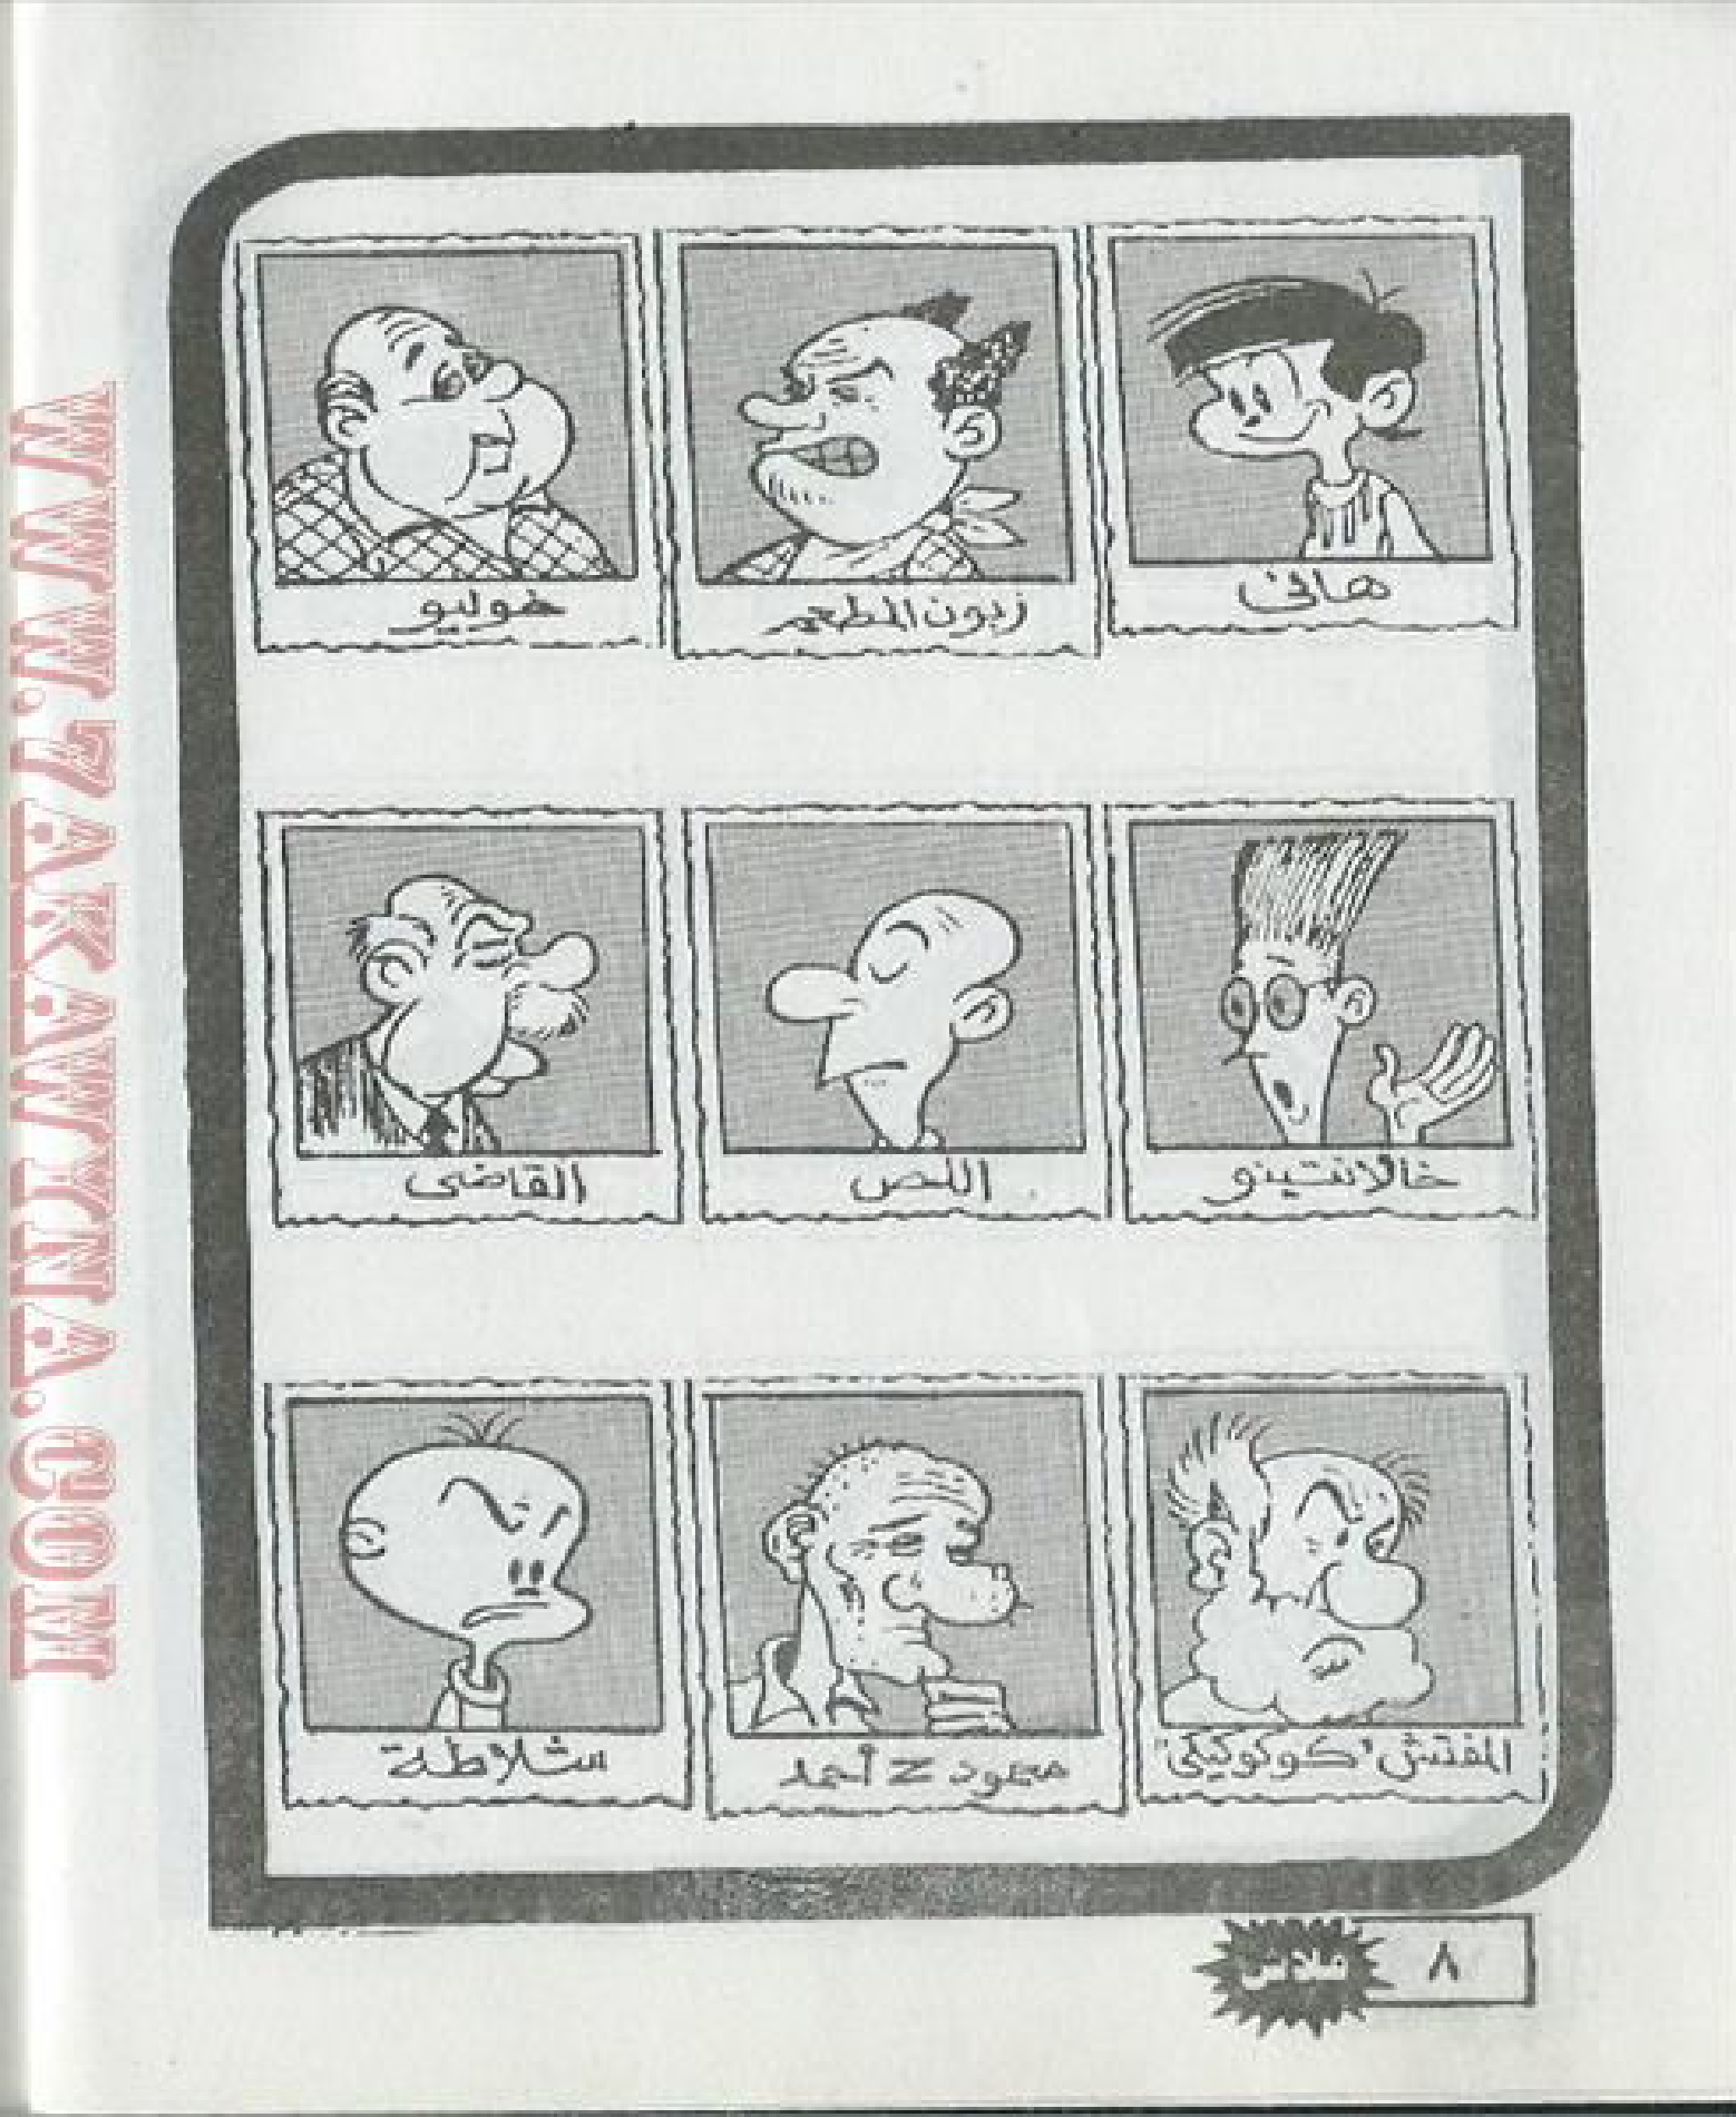 هانى
زبون المطعم
خوليو
خالانتينو
اللص
القاضى
المفتش "كوكوكيكى"
محمود z أحمد
شلاطة
٨
فلاش
WWW.7AKAWTNA.COM